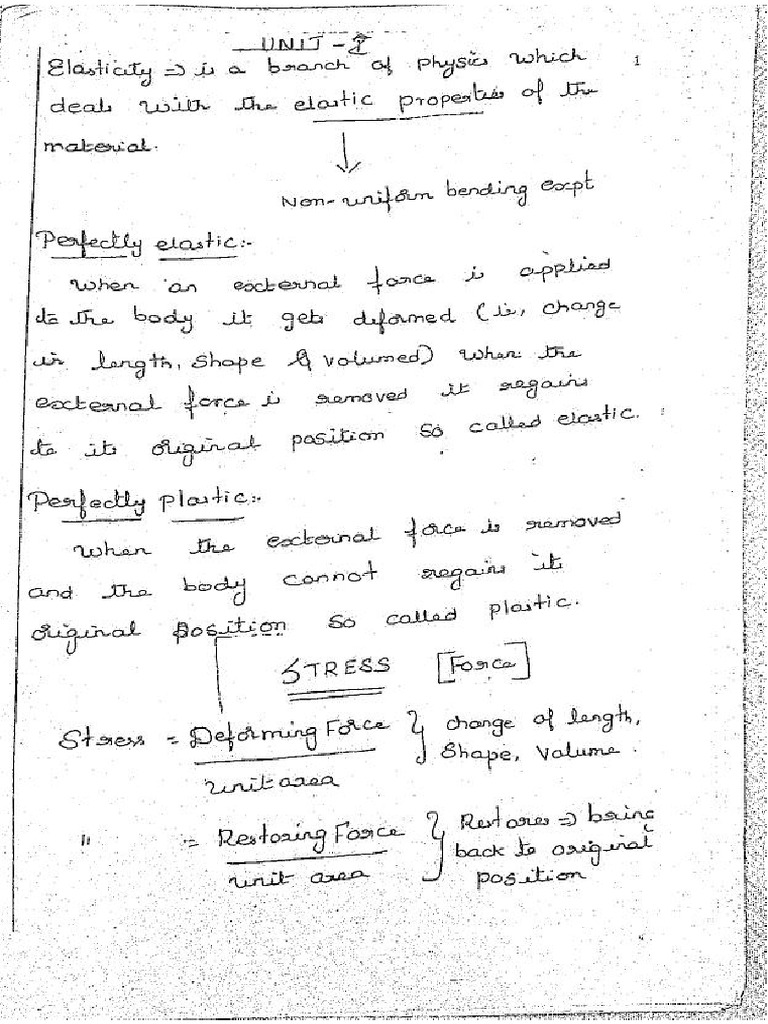 UNIT - I
Elasticity => is a branch of physics which 1
deals with the elastic properties of the
material.
Non-uniform bending expt
Perfectly elastic:-
When an external force is applied
to the body it gets deformed (ie, change
in length, shape & volumed) when the
external force is removed it regains
to its original position so called elastic.
Perfectly plastic:-
When the external force is removed
and the body cannot regains its
original position so called plastic.
STRESS [Force]
Stress = Deforming Force } change of length,
unit area shape, volume.
" = Restoring Force } Restores => bring
unit area back to original
position